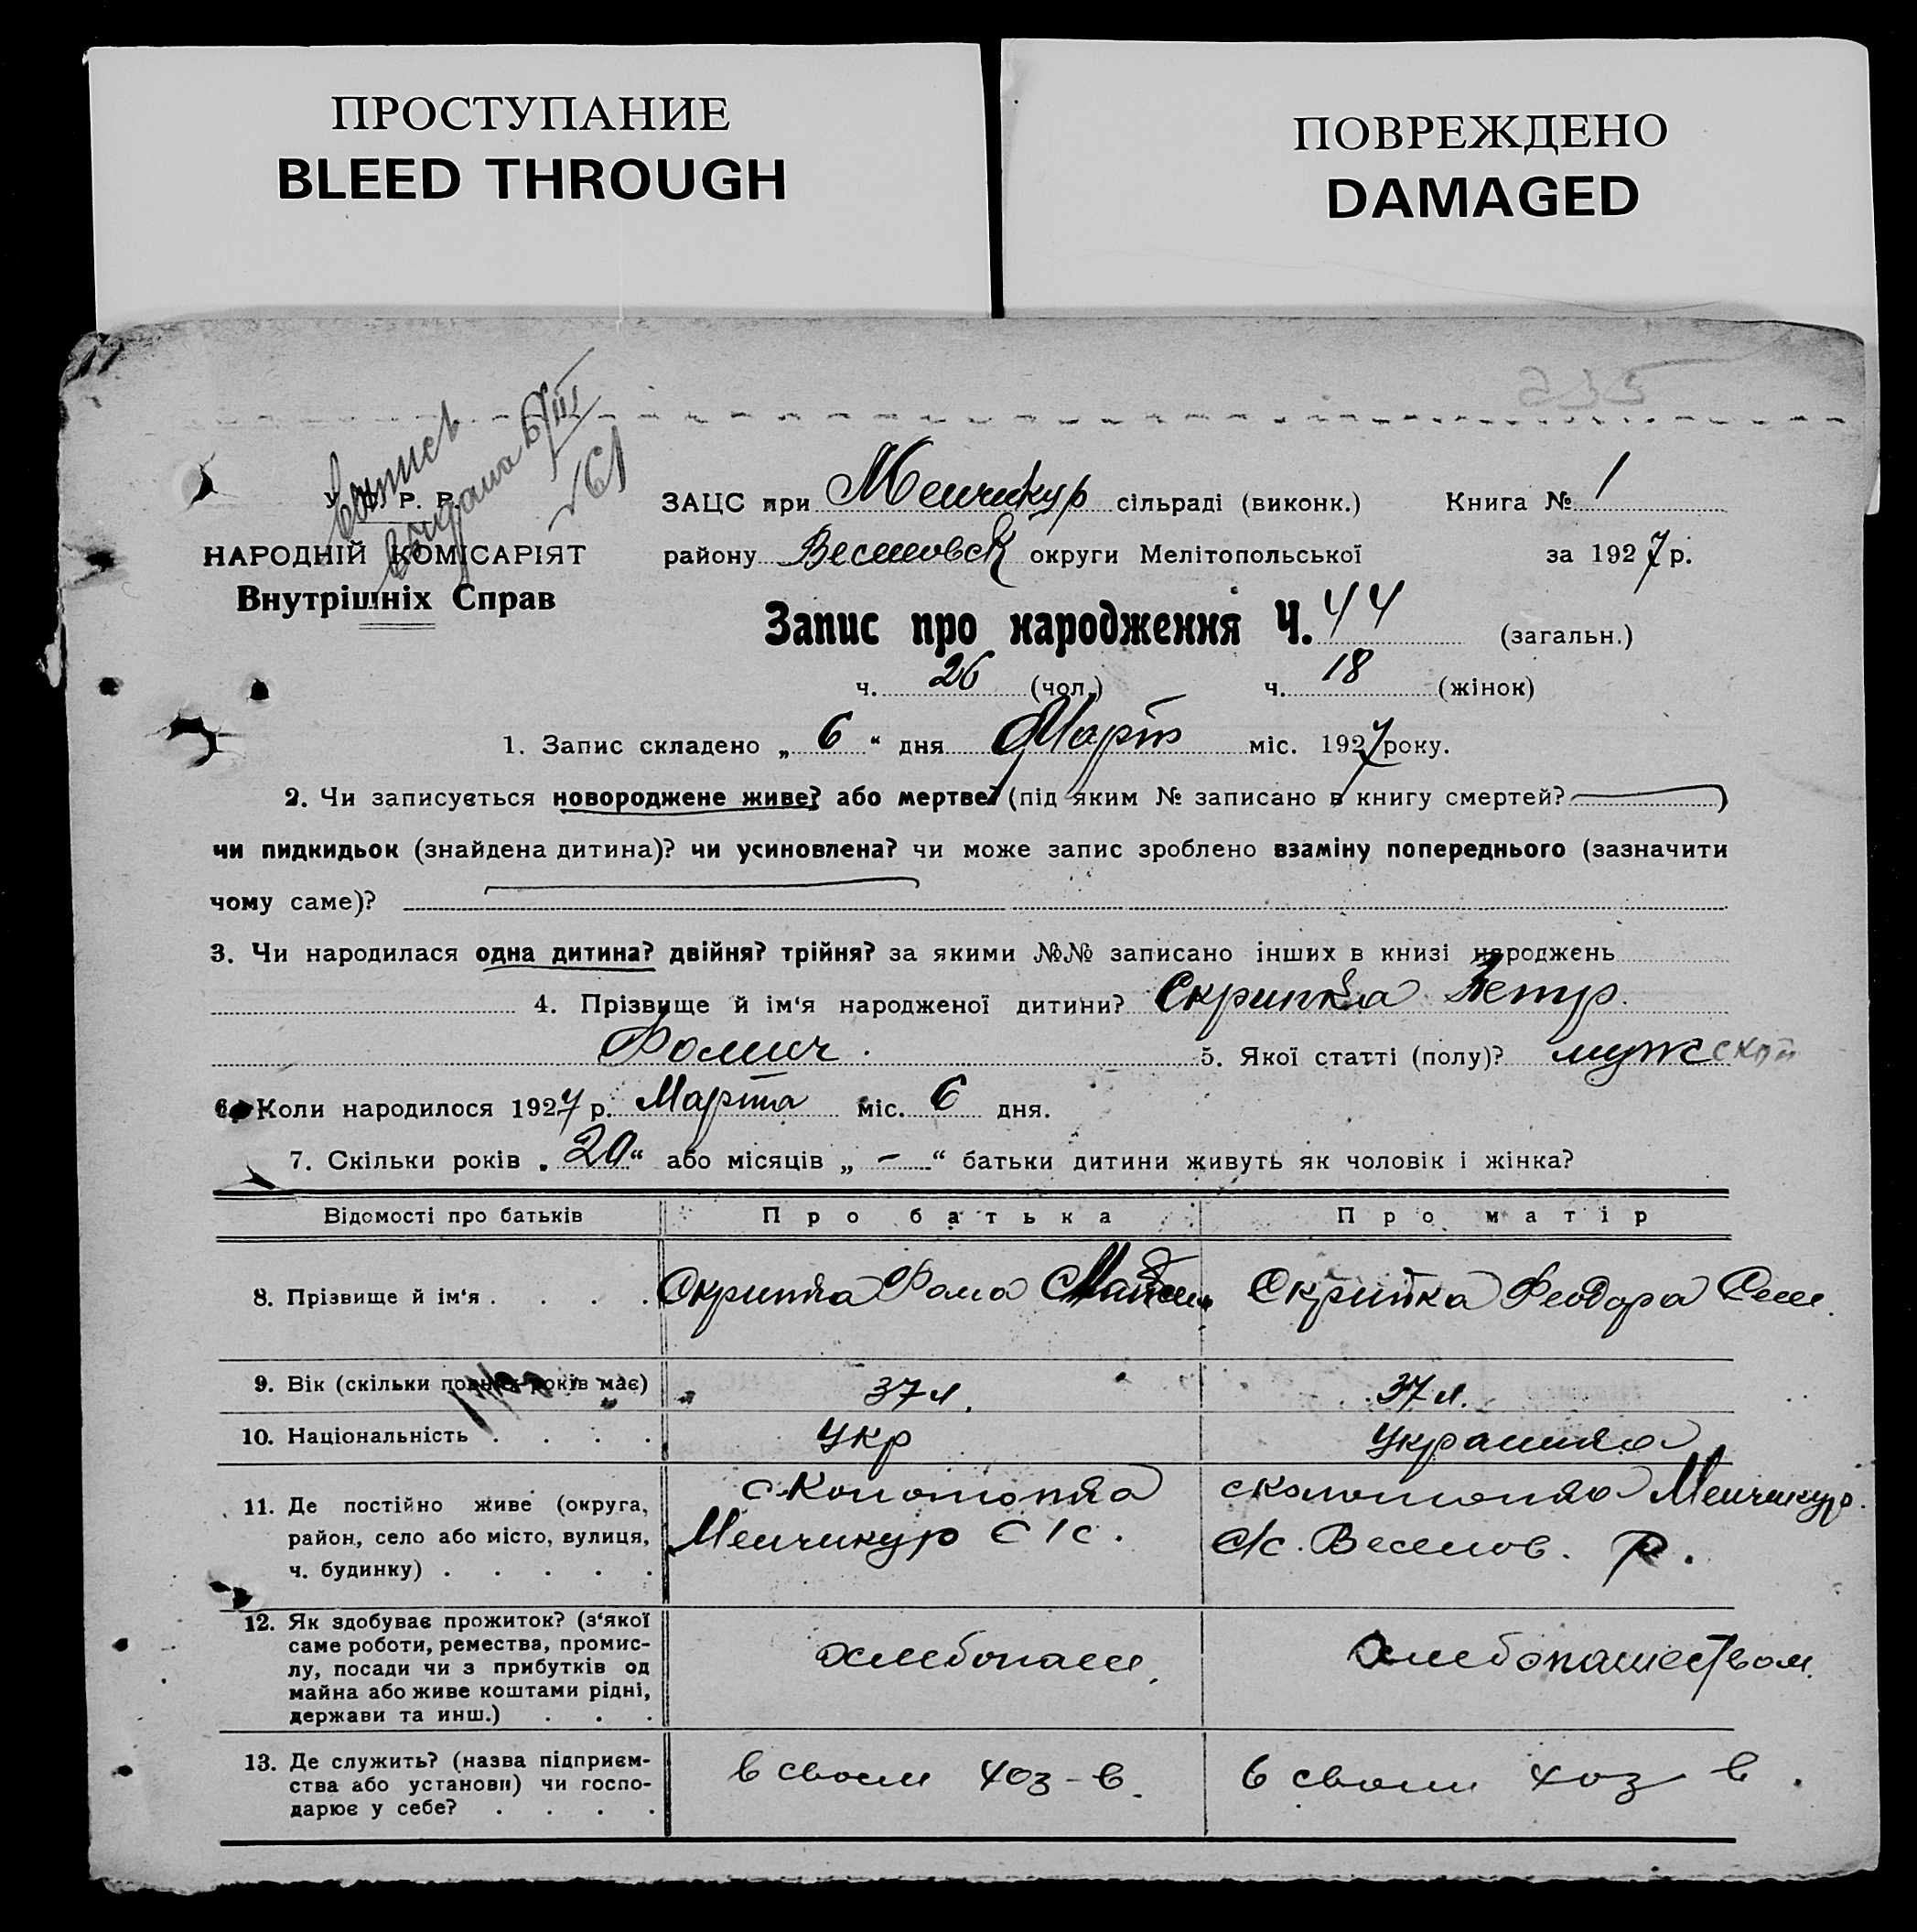 ПРОСТУПАНИЕ
BLEED THROUGH
ПОВРЕЖДЕНО
DAMAGED
выдана 6/III
61
У. С. Р. Р.
НАРОДНІЙ КОМІСАРІЯТ
Внутрішніх Справ
ЗАЦС при Менчикур сільраді (виконк.) Книга № 1
району Веселовск округи Мелітопольської за 1927 р.
Запис про народження Ч. 44 (загальн.)
ч. 26 (чол.) ч. 18 (жінок)
1. Запис складено „ 6 “ дня Март міс. 1927 року.
2. Чи записується новороджене живе? або мертве? (під яким № записано в книгу смертей? )
чи пидкидьок (знайдена дитина)? чи усиновлена? чи може запис зроблено взаміну попереднього (зазначити
чому саме)?
3. Чи народилася одна дитина? двійня? трійня? за якими №№ записано інших в книзі народжень
4. Прізвище й ім‘я народженої дитини? Скрипка Петр
Фомич. 5. Якої статті (полу)? мужской
6. Коли народилося 1927 р. Марта міс. 6 дня.
7. Скільки років „ 20 “ або місяців „ – “ батьки дитини живуть як чоловік і жінка?
Відомості про батьків Про батька Про матір
8. Прізвище й ім‘я . . . . Скрипка Фома Скрипка Феодора Сем.
9. Вік (скільки повних років має) 37 л. 37 л.
10. Національність . . . . Укр Украинка
11. Де постійно живе (округа,
район, село або місто, вулиця,
ч. будинку) . . . . .
Менчикур с/с.
Менчикур.
с/с. Веселов. Р.
12. Як здобуває прожиток? (з‘якої
саме роботи, ремества, промис-
лу, посади чи з прибутків од
майна або живе коштами рідні,
держави та инш.) . . .
хлебопаш.
хлебопашеством.
13. Де служить? (назва підприєм-
ства або установи) чи госпо-
дарює у себе? . . . .
в своем хоз-в.
в своем хоз в.